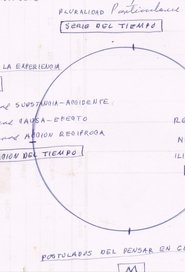 PLURALIDAD
SERIE DEL TIEMPO
LA EXPERIENCIA
SUBSTANCIA-ACCIDENTE
CAUSA-EFECTO
ACCION RECIPROCA
RE
CION DEL TIEMPO
POSTULADOS DEL PENSAR EN G
M